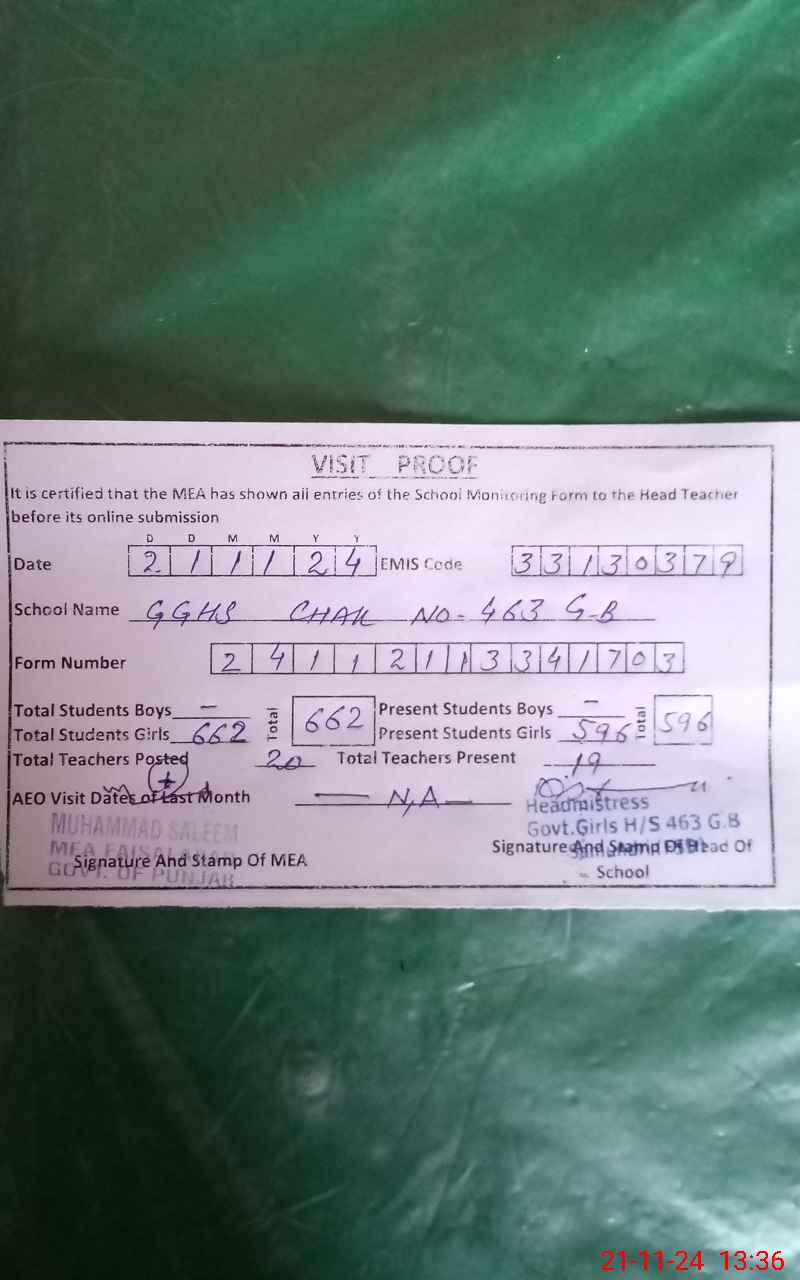 VISIT PROOF
It is certified that the MEA has shown all entries of the School Monitoring Form to the Head Teacher
before its online submission
D D M M Y Y
Date 2 1 1 1 2 4 EMIS Code 3 3 1 3 0 3 7 9
School Name GGHS CHAK NO- 463 G-B
Form Number 2 4 1 1 2 1 1 3 3 4 1 7 0 3
Total Students Boys — Total 662 Present Students Boys — Total 596
Total Students Girls 662 Present Students Girls 596
Total Teachers Posted 20 Total Teachers Present 19
AEO Visit Dates of Last Month — N,A —
Headmistress
MUHAMMAD SALEEM Govt.Girls H/S 463 G.B
MEA FAISALABAD Signature And Stamp Of Head Of
Signature And Stamp Of MEA
GOVT. OF PUNJAB School
21-11-24 13:36